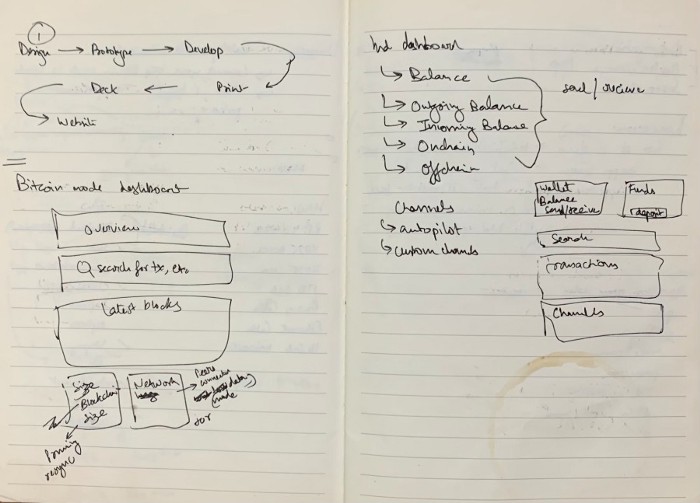 1
Design → Prototype → Develop
Deck ← Print
→ Website
Bitcoin node dashboard
Overview
search for tx, etc
Latest blocks
Size
Blockchain
size
Pruning
resync
Network
Peers
connection
mode
tor
lnd dashboard
↳ Balance
↳ Outgoing Balance
↳ Incoming Balance
↳ Onchain
↳ Offchain
send / receive
Channels
↳ autopilot
↳ custom channels
Wallet
Balance
send/receive
Funds
deposit
Search
Transactions
Channels